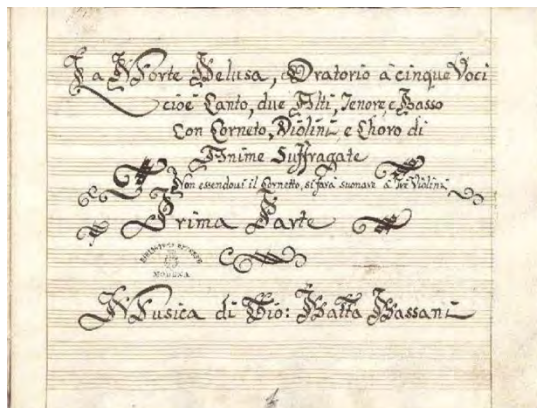 La Morte Delusa, Oratorio à cinque Voci
cioè Canto, due Alti, Tenore, e Basso
Con Corneto, Violini, e Choro di
Anime Suffragate
Non essendoui il Cornetto, si farà suonare à Trè Violini
Prima Parte
BIBLIOTECA ESTENSE
MODENA
Musica di Gio: Batta Bassani